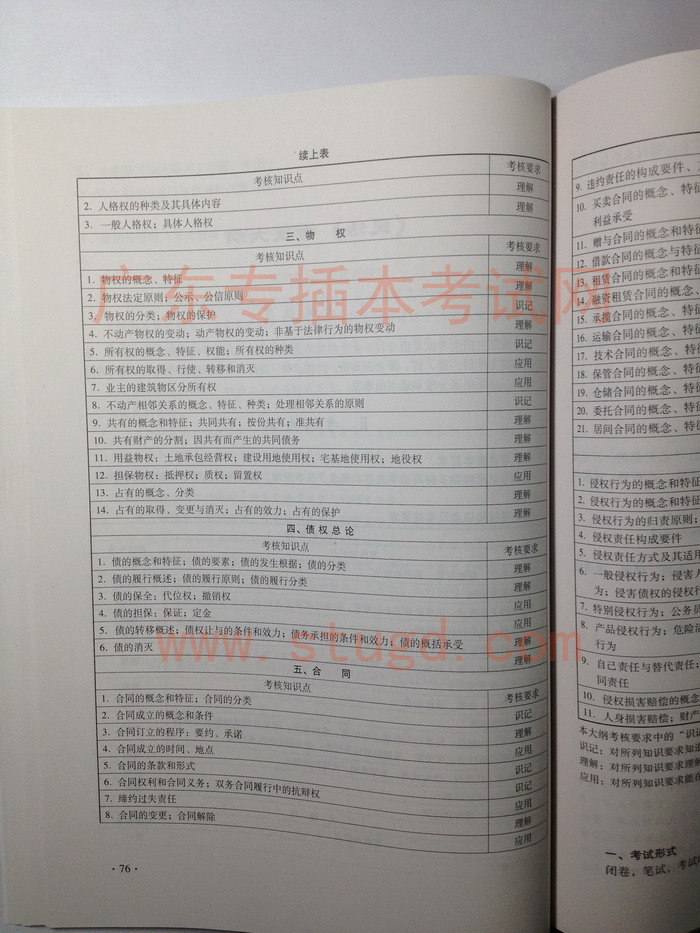 续上表
考核知识点 考核要求
2. 人格权的种类及其具体内容 理解
3. 一般人格权；具体人格权 理解
三、物 权
考核知识点 考核要求
1. 物权的概念、特征 理解
2. 物权法定原则；公示、公信原则 理解
3. 物权的分类；物权的保护 识记
4. 不动产物权的变动；动产物权的变动；非基于法律行为的物权变动 理解
5. 所有权的概念、特征、权能；所有权的种类 识记
6. 所有权的取得、行使、转移和消灭 应用
7. 业主的建筑物区分所有权 应用
8. 不动产相邻关系的概念、特征、种类；处理相邻关系的原则 识记
9. 共有的概念和特征；共同共有；按份共有；准共有 理解
10. 共有财产的分割；因共有而产生的共同债务 理解
11. 用益物权：土地承包经营权；建设用地使用权；宅基地使用权；地役权 理解
12. 担保物权：抵押权；质权；留置权 应用
13. 占有的概念、分类 理解
14. 占有的取得、变更与消灭；占有的效力；占有的保护 理解
四、债权总论
考核知识点 考核要求
1. 债的概念和特征；债的要素；债的发生根据；债的分类 理解
2. 债的履行概述；债的履行原则；债的履行分类 理解
3. 债的保全：代位权；撤销权 应用
4. 债的担保：保证；定金 应用
5. 债的转移概述；债权让与的条件和效力；债务承担的条件和效力；债的概括承受 理解
6. 债的消灭 理解
五、合 同
考核知识点 考核要求
1. 合同的概念和特征；合同的分类 识记
2. 合同成立的概念和条件 理解
3. 合同订立的程序：要约、承诺 应用
4. 合同成立的时间、地点 识记
5. 合同的条款和形式 识记
6. 合同权利和合同义务；双务合同履行中的抗辩权 应用
7. 缔约过失责任 理解
8. 合同的变更；合同解除 应用
· 76 ·
9. 违约责任的构成要件、
10. 买卖合同的概念、特征
利益承受
11. 赠与合同的概念和特征
12. 借款合同的概念与特征
13. 租赁合同的概念和特征
14. 融资租赁合同的概念、
15. 承揽合同的概念、特征
16. 运输合同的概念、特征
17. 技术合同的概念、特征
18. 保管合同的概念、特征
19. 仓储合同的概念、特征
20. 委托合同的概念、特征
21. 居间合同的概念、特征
1. 侵权行为的概念和特征
2. 侵权行为的概念和特征
3. 侵权行为的归责原则；
4. 侵权责任构成要件
5. 侵权责任方式及其适用
6. 一般侵权行为：侵害人
为；侵害债权的侵权行
7. 特别侵权行为；公务员
8. 产品侵权行为；危险活
行为
9. 自己责任与替代责任；
同责任
10. 侵权损害赔偿的概念
11. 人身损害赔偿；财产
本大纲考核要求中的“识记
识记：对所列知识要求知道
理解：对所列知识要求理解
应用：对所列知识要求能在
一、考试形式
闭卷，笔试，考试
广东专插本考试网
www.stugd.com